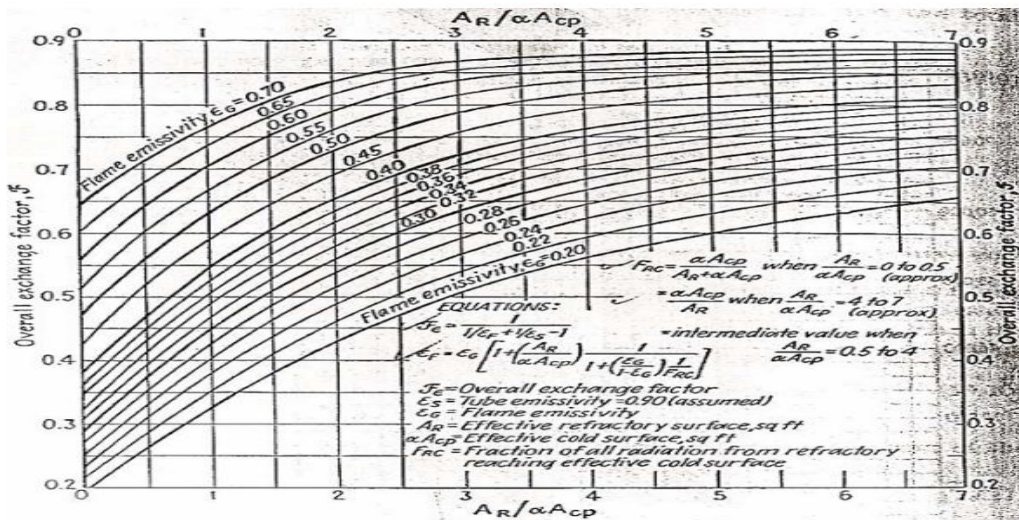 A_R/αA_cp
0 1 2 3 4 5 6 7
0.9 0.9
0.8 0.8
0.7 0.7
0.6 0.6
0.5 0.5
0.4 0.4
0.3 0.3
0.2 0.2
Overall exchange factor, ℱ
Overall exchange factor, ℱ
Flame emissivity, ε_G=0.70
0.65
0.60
0.55
0.50
0.45
0.40
0.38
0.36
0.34
0.30 0.32
0.28
0.26
0.24
0.22
Flame emissivity, ε_G=0.20
F_RC = αA_cp / (A_R+αA_cp) when A_R/αA_cp = 0 to 0.5 (approx)
= αA_cp/A_R when A_R/αA_cp = 4 to 7 (approx)
= intermediate value when A_R/αA_cp = 0.5 to 4
EQUATIONS:
ℱ_e = 1 / (1/ε_F + 1/ε_S - 1)
ε_F = ε_G [1+(A_R/αA_cp) 1/(1+(ε_G/(1-ε_G)) 1/F_RC)]
ℱ_e = Overall exchange factor
ε_S = Tube emissivity = 0.90 (assumed)
ε_G = Flame emissivity
A_R = Effective refractory surface, sq ft
αA_cp = Effective cold surface, sq ft
F_RC = Fraction of all radiation from refractory
reaching effective cold surface
0 1 2 3 4 5 6 7
A_R/αA_cp